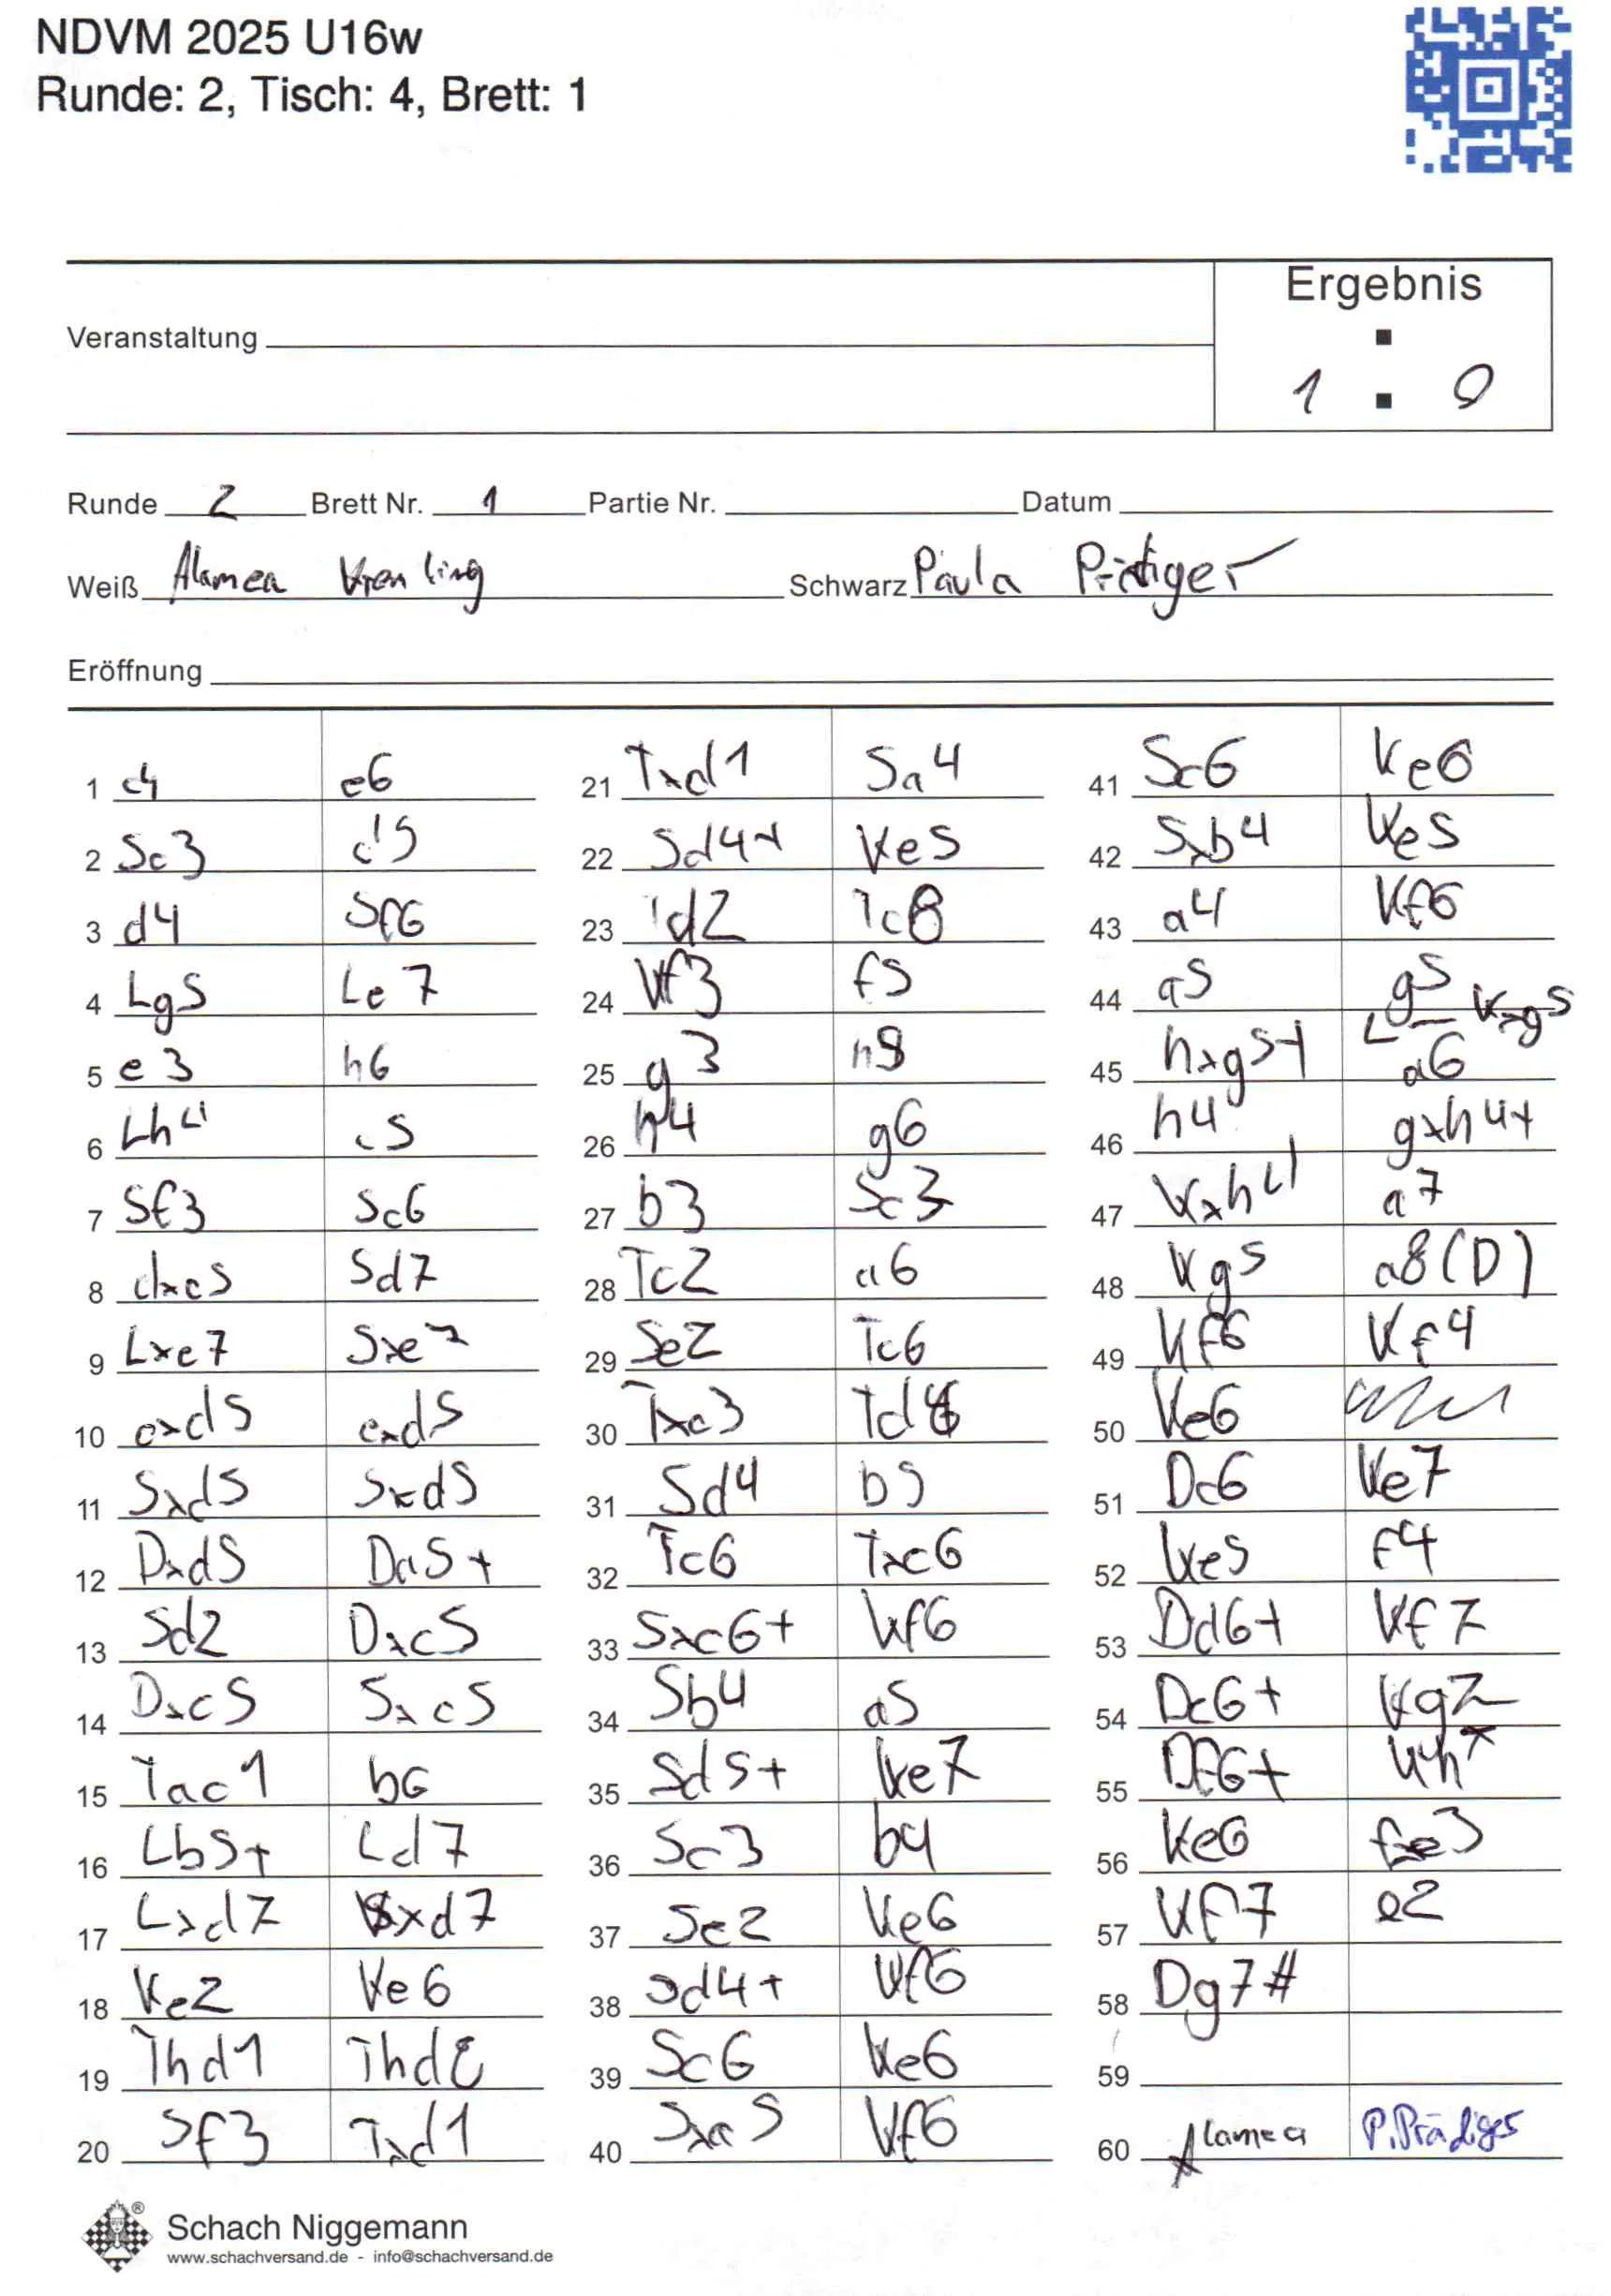 NDVM 2025 U16w
Runde: 2, Tisch: 4, Brett: 1
Ergebnis
Veranstaltung
1 : 0
Runde 2 Brett Nr. 1 Partie Nr. Datum
Weiß Alamea Schwarz Paula
Eröffnung
1 c4 e6
2 Sc3 d5
3 d4 Sf6
4 Lg5 Le7
5 e3 h6
6 Lh4 c5
7 Sf3 Sc6
8 dxc5 Sd7
9 Lxe7 Sxe7
10 cxd5 exd5
11 Sxd5 Sxd5
12 Dxd5 Da5+
13 Sd2 Dxc5
14 Dxc5 Sxc5
15 Tac1 b6
16 Lb5+ Ld7
17 Lxd7 Kxd7
18 Ke2 Ke6
19 Thd1 Thd8
20 Sf3 Txd1
21 Txd1 Sa4
22 Sd4+ Ke5
23 Td2 Tc8
24 Kf3 f5
25 g3 h5
26 h4 g6
27 b3 Sc3
28 Tc2 a6
29 Se2 Tc6
30 Txc3 Td6
31 Sd4 b5
32 Tc6 Txc6
33 Sxc6+ Kf6
34 Sb4 a5
35 Sd5+ Ke7
36 Sc3 b4
37 Se2 Ke6
38 Sd4+ Kf6
39 Sc6 Ke6
40 Sxa5 Kf6
41 Sc6 Ke6
42 Sxb4 Ke5
43 a4 Kf6
44 a5 g5
Kxg5
45 hxg5+ a6
46 h4 gxh4+
47 Kxh4 a7
48 Kg5 a8(D)
49 Kf6 Kf4
50 Ke6
51 Dc6 Ke7
52 Ke5 f4
53 Dd6+ Kf7
54 Dc6+ Kg7
55 Df6+ Kh7
56 Ke6 fxe3
57 Kf7 e2
58 Dg7#
59
60 Alamea P.Prädiger
Schach Niggemann
www.schachversand.de - info@schachversand.de